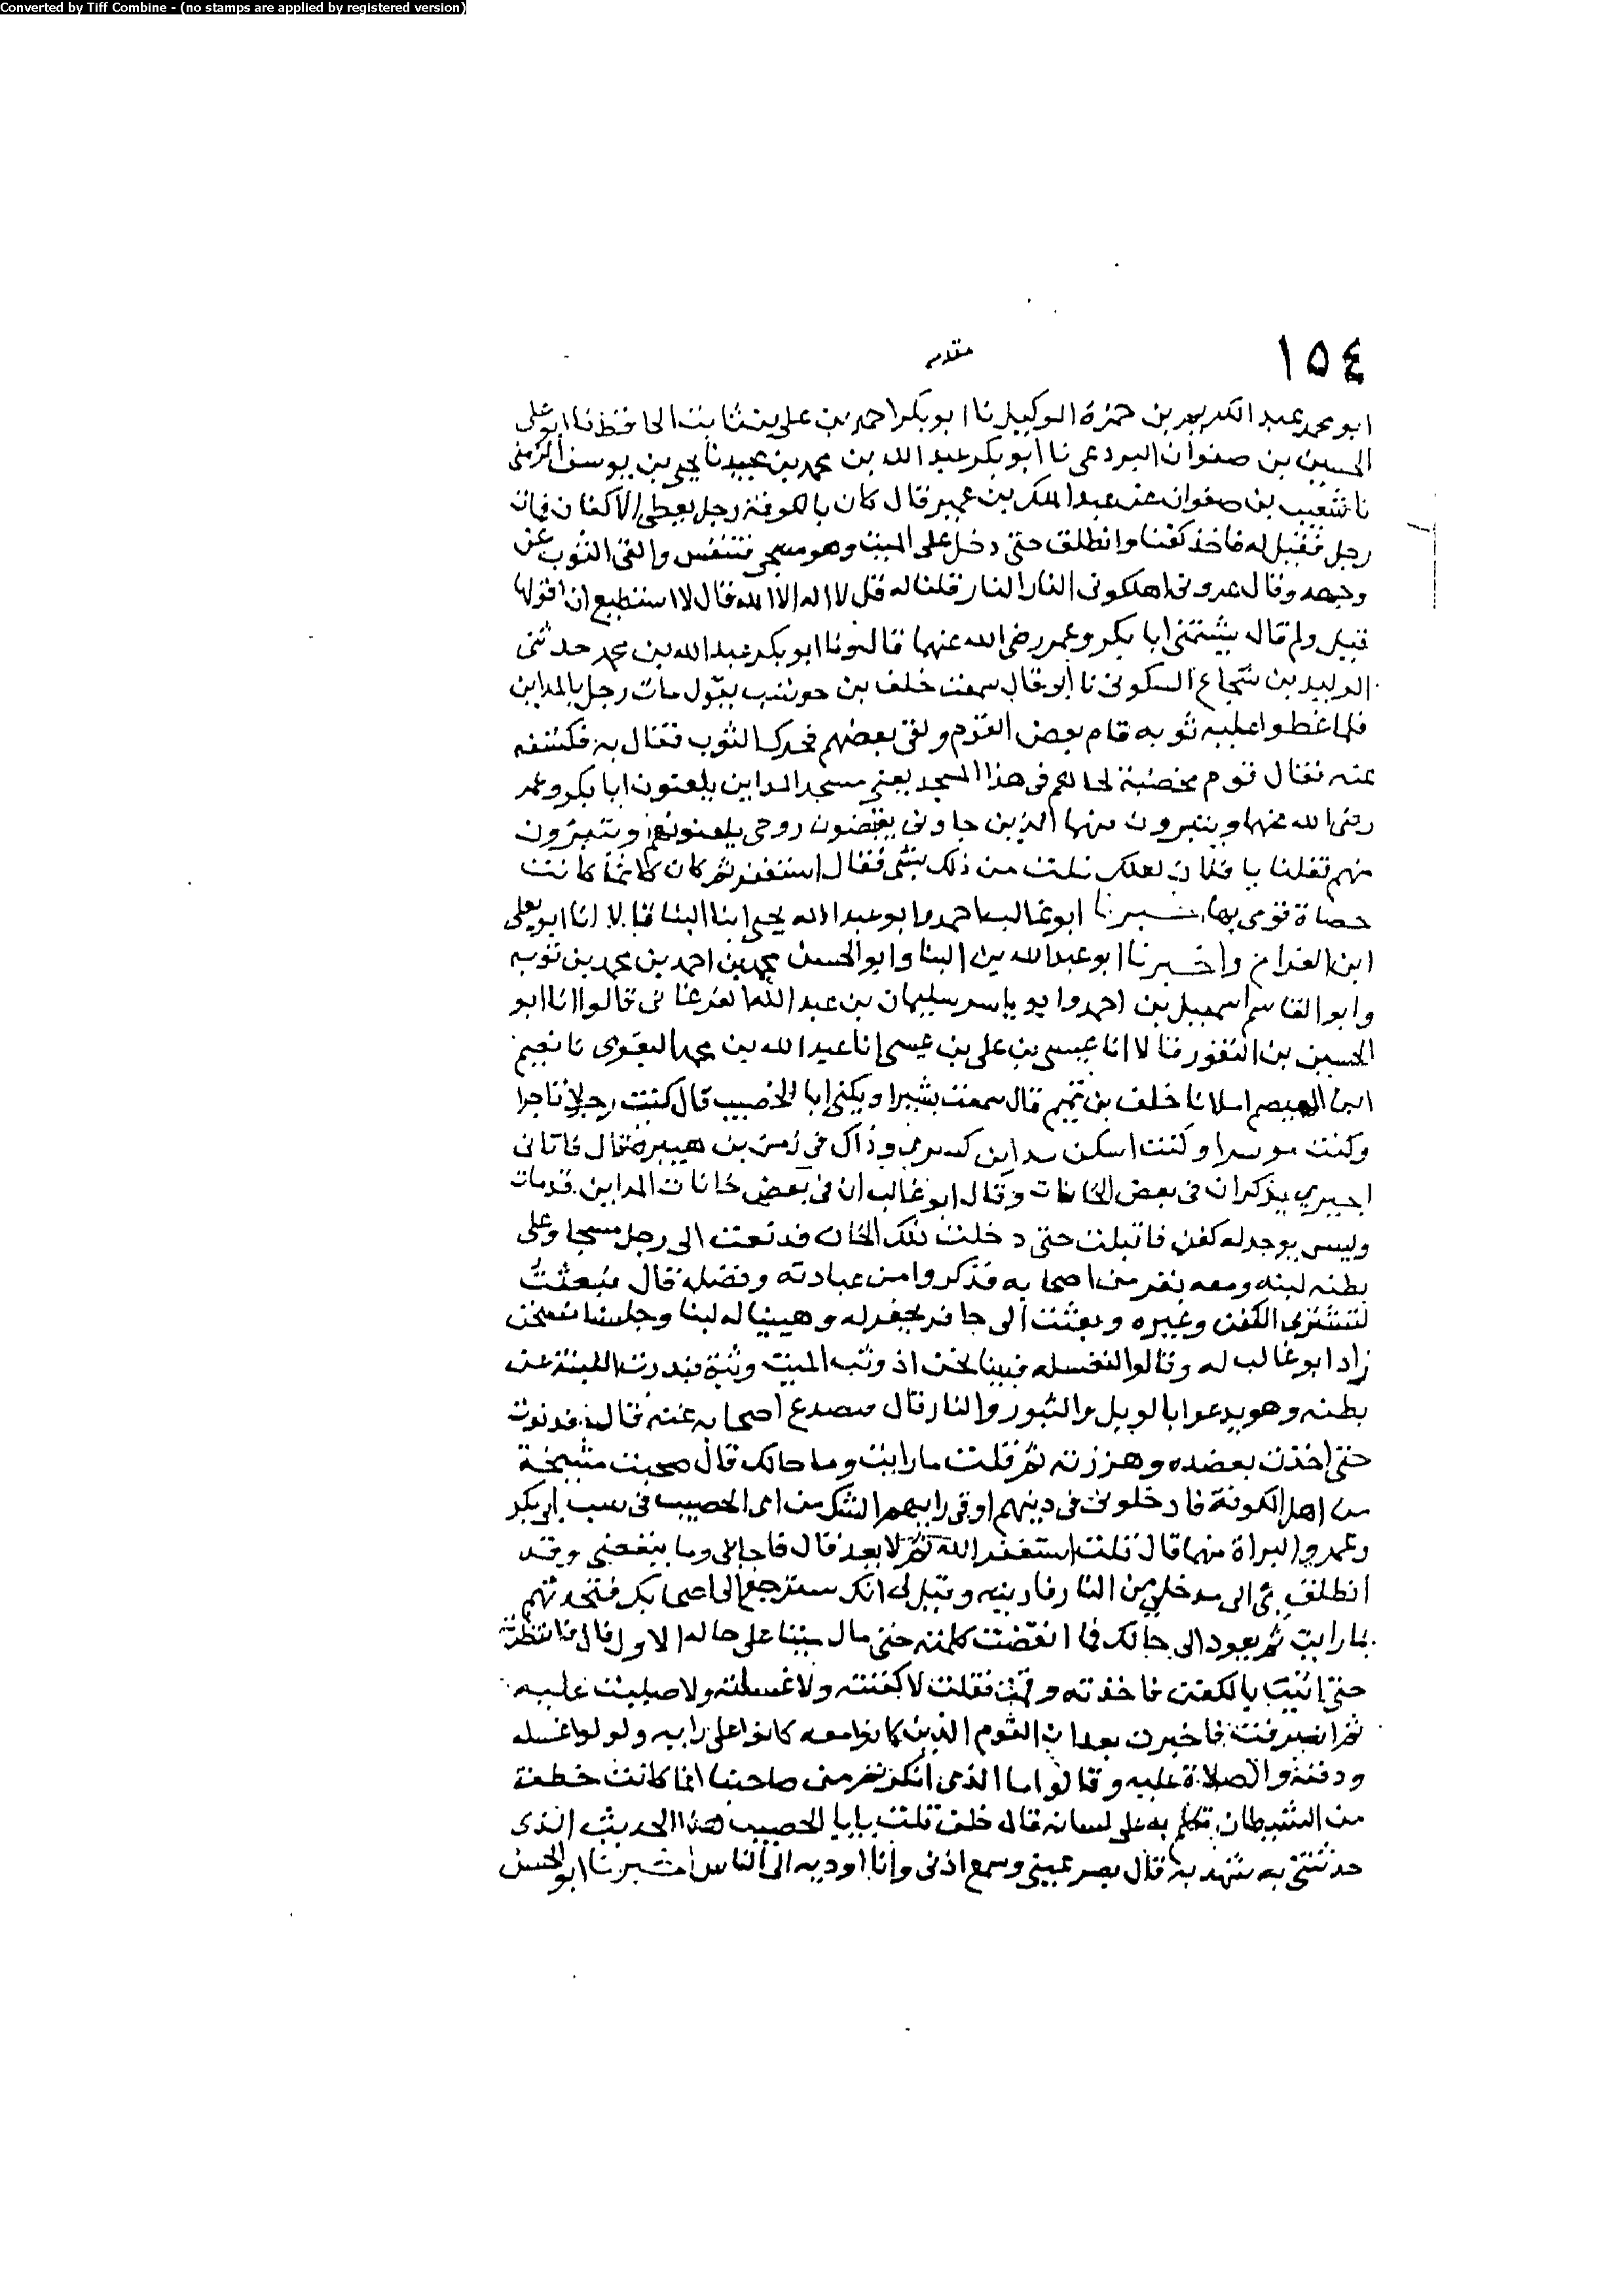 Converted by Tiff Combine - (no stamps are applied by registered version)
١٥٤
مقدم
ابو محمد عبد الكريم بن حمزة الوكيل نا ابو بكر احمد بن علي بن ثابت الحافظ نا ابو على
الحسين بن صفوان البردعى نا أبو بكر عبد الله بن محمد بن عبيد نا يحيى بن يوسف الزمى
نا شعيب بن صفوان عن عبد الملك بن عمير قال كان بالكوفة رجل يعطى الاكفان فمات
رجل فقيل له فاخذ كفنا وانطلق حتى دخل على الميت وهو مسجى فتنفس والقى الثوب عن
وجهه وقال غرونى اهلكونى النار النار قلنا له قل لا اله الا الله قال لا استطيع ان اقولها
قيل ولم قال بشتمى ابا بكر وعمر رضى الله عنهما قال ونا ابو بكر عبد الله بن محمد حدثنى
الوليد بن شجاع السكونى نا أبى قال سمعت خلف بن حوشب يقول مات رجل بالمداين
فلما غطوا عليه ثوبه قام بعض القوم وبقى بعضهم فحرك الثوب فقال به فكشفه
عنه فقال قوم مخضبة لحاهم فى هذا المسجد يعنى مسجد المداين يلعنون ابا بكر وعمر
رضى الله عنهما ويتبرون منهما الذين جاونى يقبضون روحى يلعنونهم ويتبرون
منهم فقلنا يا فلان لعلك نلت من ذلك بشى فقال استغفر ثم كان كانما كانت
حصاة فرمى بها اخبرنا ابو غالب احمد وابو عبد الله يحيى ابنا البنا قالا انا ابو يعلى
ابن الفرا ح واخبرنا ابو عبد الله بن البنا وابو الحسن محمد بن احمد بن محمد بن توبه
وابو القاسم اسمعيل بن احمد وابو ياسر سليمان بن عبد الله الفرغانى قالوا انا ابو
الحسين بن النقور قالا انا عيسى بن على بن عيسى انا عبد الله بن محمد البغوى نا نعيم
ابن الهيصم املانا خلف بن تميم قال سمعت بشيرا ويكنى ابا الخصيب قال كنت رجلا تاجرا
وكنت موسرا وكنت اسكن مداين كسرى وذاك فى زمن بن هبيرة قال فاتانى
اجيرى يذكر ان فى بعض الخانات وقال ابو غالب ان فى بعض خانات المداين قد مات
وليس يوجد له كفن فاقبلت حتى دخلت ذلك الخان فدفعت الى رجل مسجا وعلى
بطنه لبنه ومعه نفر من اصحابه فذكروا من عبادته وفضله قال فبعثت
لتشترى الكفن وغيره وبعثت الى حافر يحفر له وهيينا له لبنا وجلسنا نسخن
زاد ابو غالب له وقالوا لنغسله فبينا نحن اذ وثب الميت وثبة فندرت اللبنة عن
بطنه وهو يدعوا بالويل والثبور والنار قال فتصدع اصحابه عنه قال فدنوت
حتى اخذت بعضده وهززته ثم قلت ما رايت وما حالك قال صحبت مشيخة
من اهل الكوفة فادخلونى فى دينهم او فى رايهم الشك من ابى الخصيب فى سب ابى بكر
وعمر والبراة منهما قال قلت استغفر الله ثم لا تعد قال فاجابنى وما ينفعنى وقد
انطلق بى الى مدخلى من النار فاريته وقيل لى انك سترجع الى اصحابك فتحدثهم
بما رايت ثم تعود الى حالك فما انقضت كلمته حتى مال ميتا على حاله الاول قال فانتظرت
حتى اتيت بالكفن فاخذته وقمت فقلت لا كفنته ولا غسلته ولا صليت عليه
ثم انصرفت فاخبرت بعد ان القوم الذين كانوا معه كانوا على رايه وتولوا غسله
ودفنه والصلاة عليه وقالوا ما الذى انكرتم من صاحبنا انما كانت خطفة
من الشيطان تكلم به على لسانه قال خلف قلت يابا الخصيب هذا الحديث الذى
حدثتنى به شهد به قال بصر عينى وسمع اذنى وانا اوديه الى الناس اخبرنا ابو الحسن